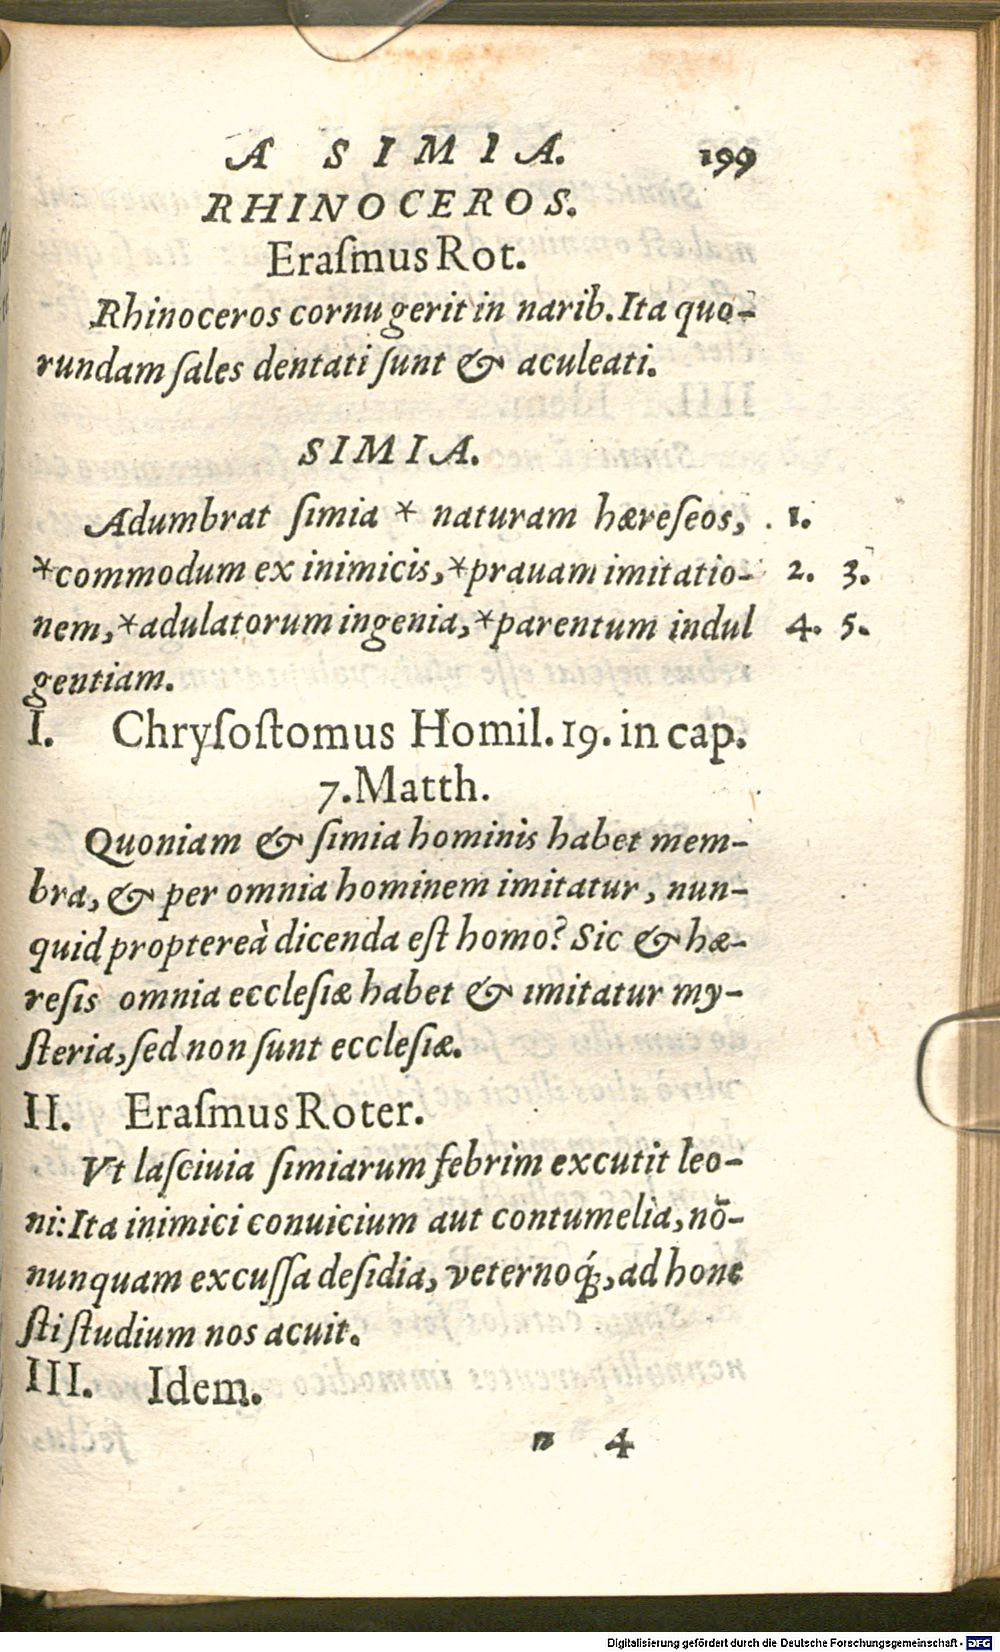 A SIMIA. 199
RHINOCEROS.
Eraſmus Rot.
Rhinoceros cornu gerit in narib. Ita quo-
rundam ſales dentati ſunt & aculeati.
SIMIA.
Adumbrat ſimia * naturam hæreſeos, 1.
*commodum ex inimicis, *prauam imitatio- 2. 3.
nem, *adulatorum ingenia, *parentum indul 4. 5.
gentiam.
I. Chryſoſtomus Homil. 19. in cap.
7. Matth.
Quoniam & ſimia hominis habet mem-
bra, & per omnia hominem imitatur, nun-
quid proptereà dicenda eſt homo? Sic & hæ-
reſis omnia eccleſiæ habet & imitatur my-
ſteria, ſed non ſunt eccleſiæ.
II. Eraſmus Roter.
Vt laſciuia ſimiarum febrim excutit leo-
ni: Ita inimici conuicium aut contumelia, nō-
nunquam excuſſa deſidia, veternoq́;, ad hone
ſti ſtudium nos acuit.
III. Idem.
n 4
Digitalisierung gefördert durch die Deutsche Forschungsgemeinschaft - DFG